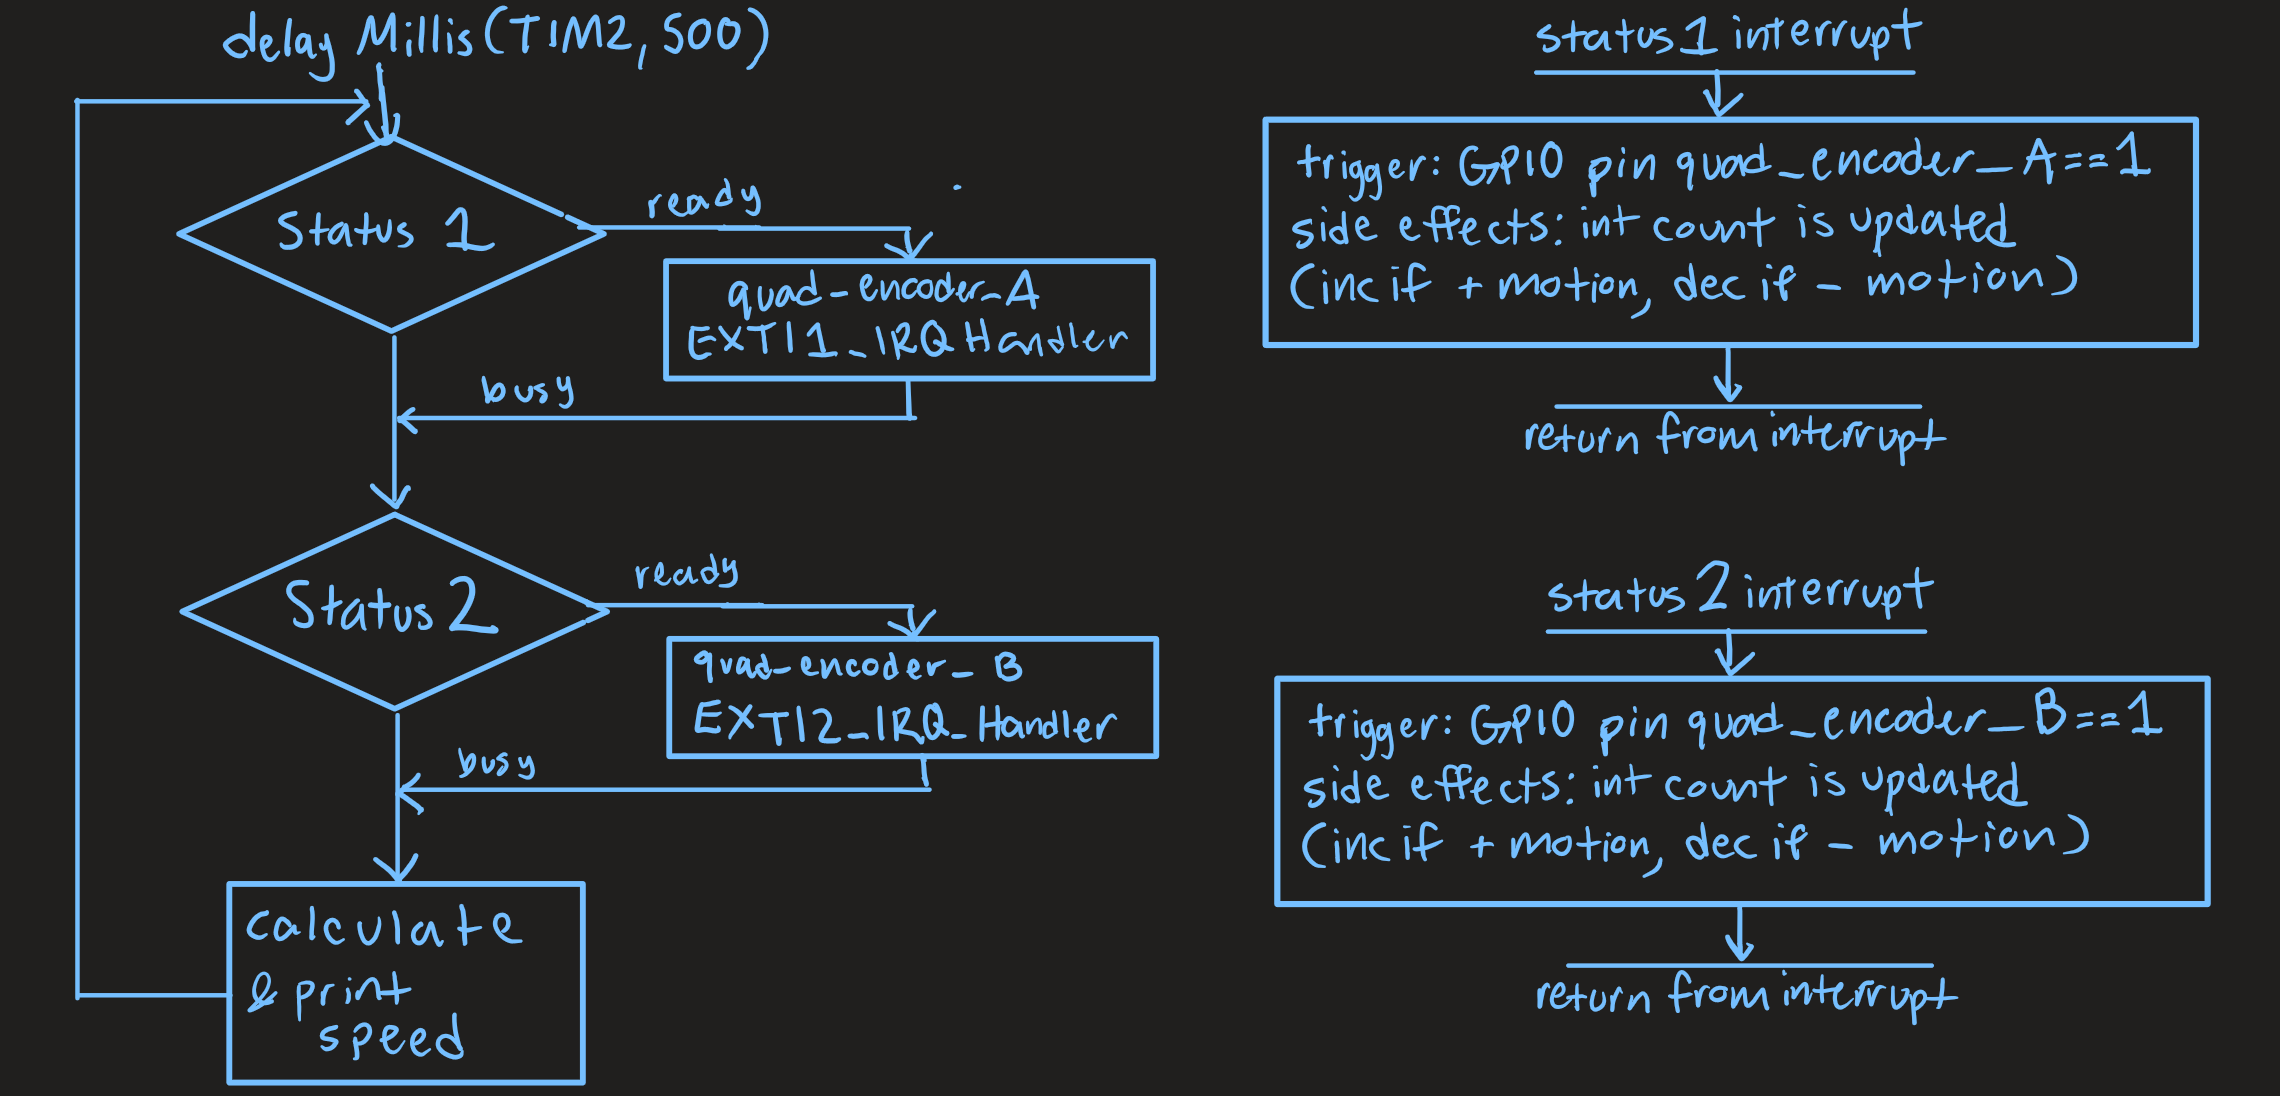 delay Millis(TIM2, 500)
Status 1
ready
quad-encoder-A
EXTI1_IRQ Handler
busy
Status 2
ready
quad-encoder_B
EXTI2_IRQ_Handler
busy
calculate
& print
speed
status 1 interrupt
trigger: GPIO pin quad_encoder_A==1
side effects: int count is updated
(inc if + motion, dec if - motion)
return from interrupt
status 2 interrupt
trigger: GPIO pin quad_encoder_B==1
side effects: int count is updated
(inc if + motion, dec if - motion)
return from interrupt